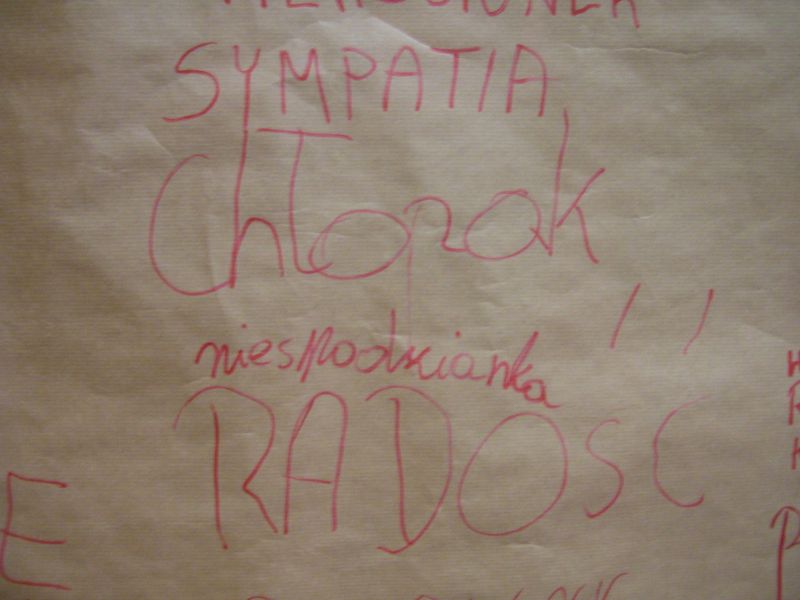 SYMPATIA
Chłopak
niespodzianka
RADOŚĆ
E